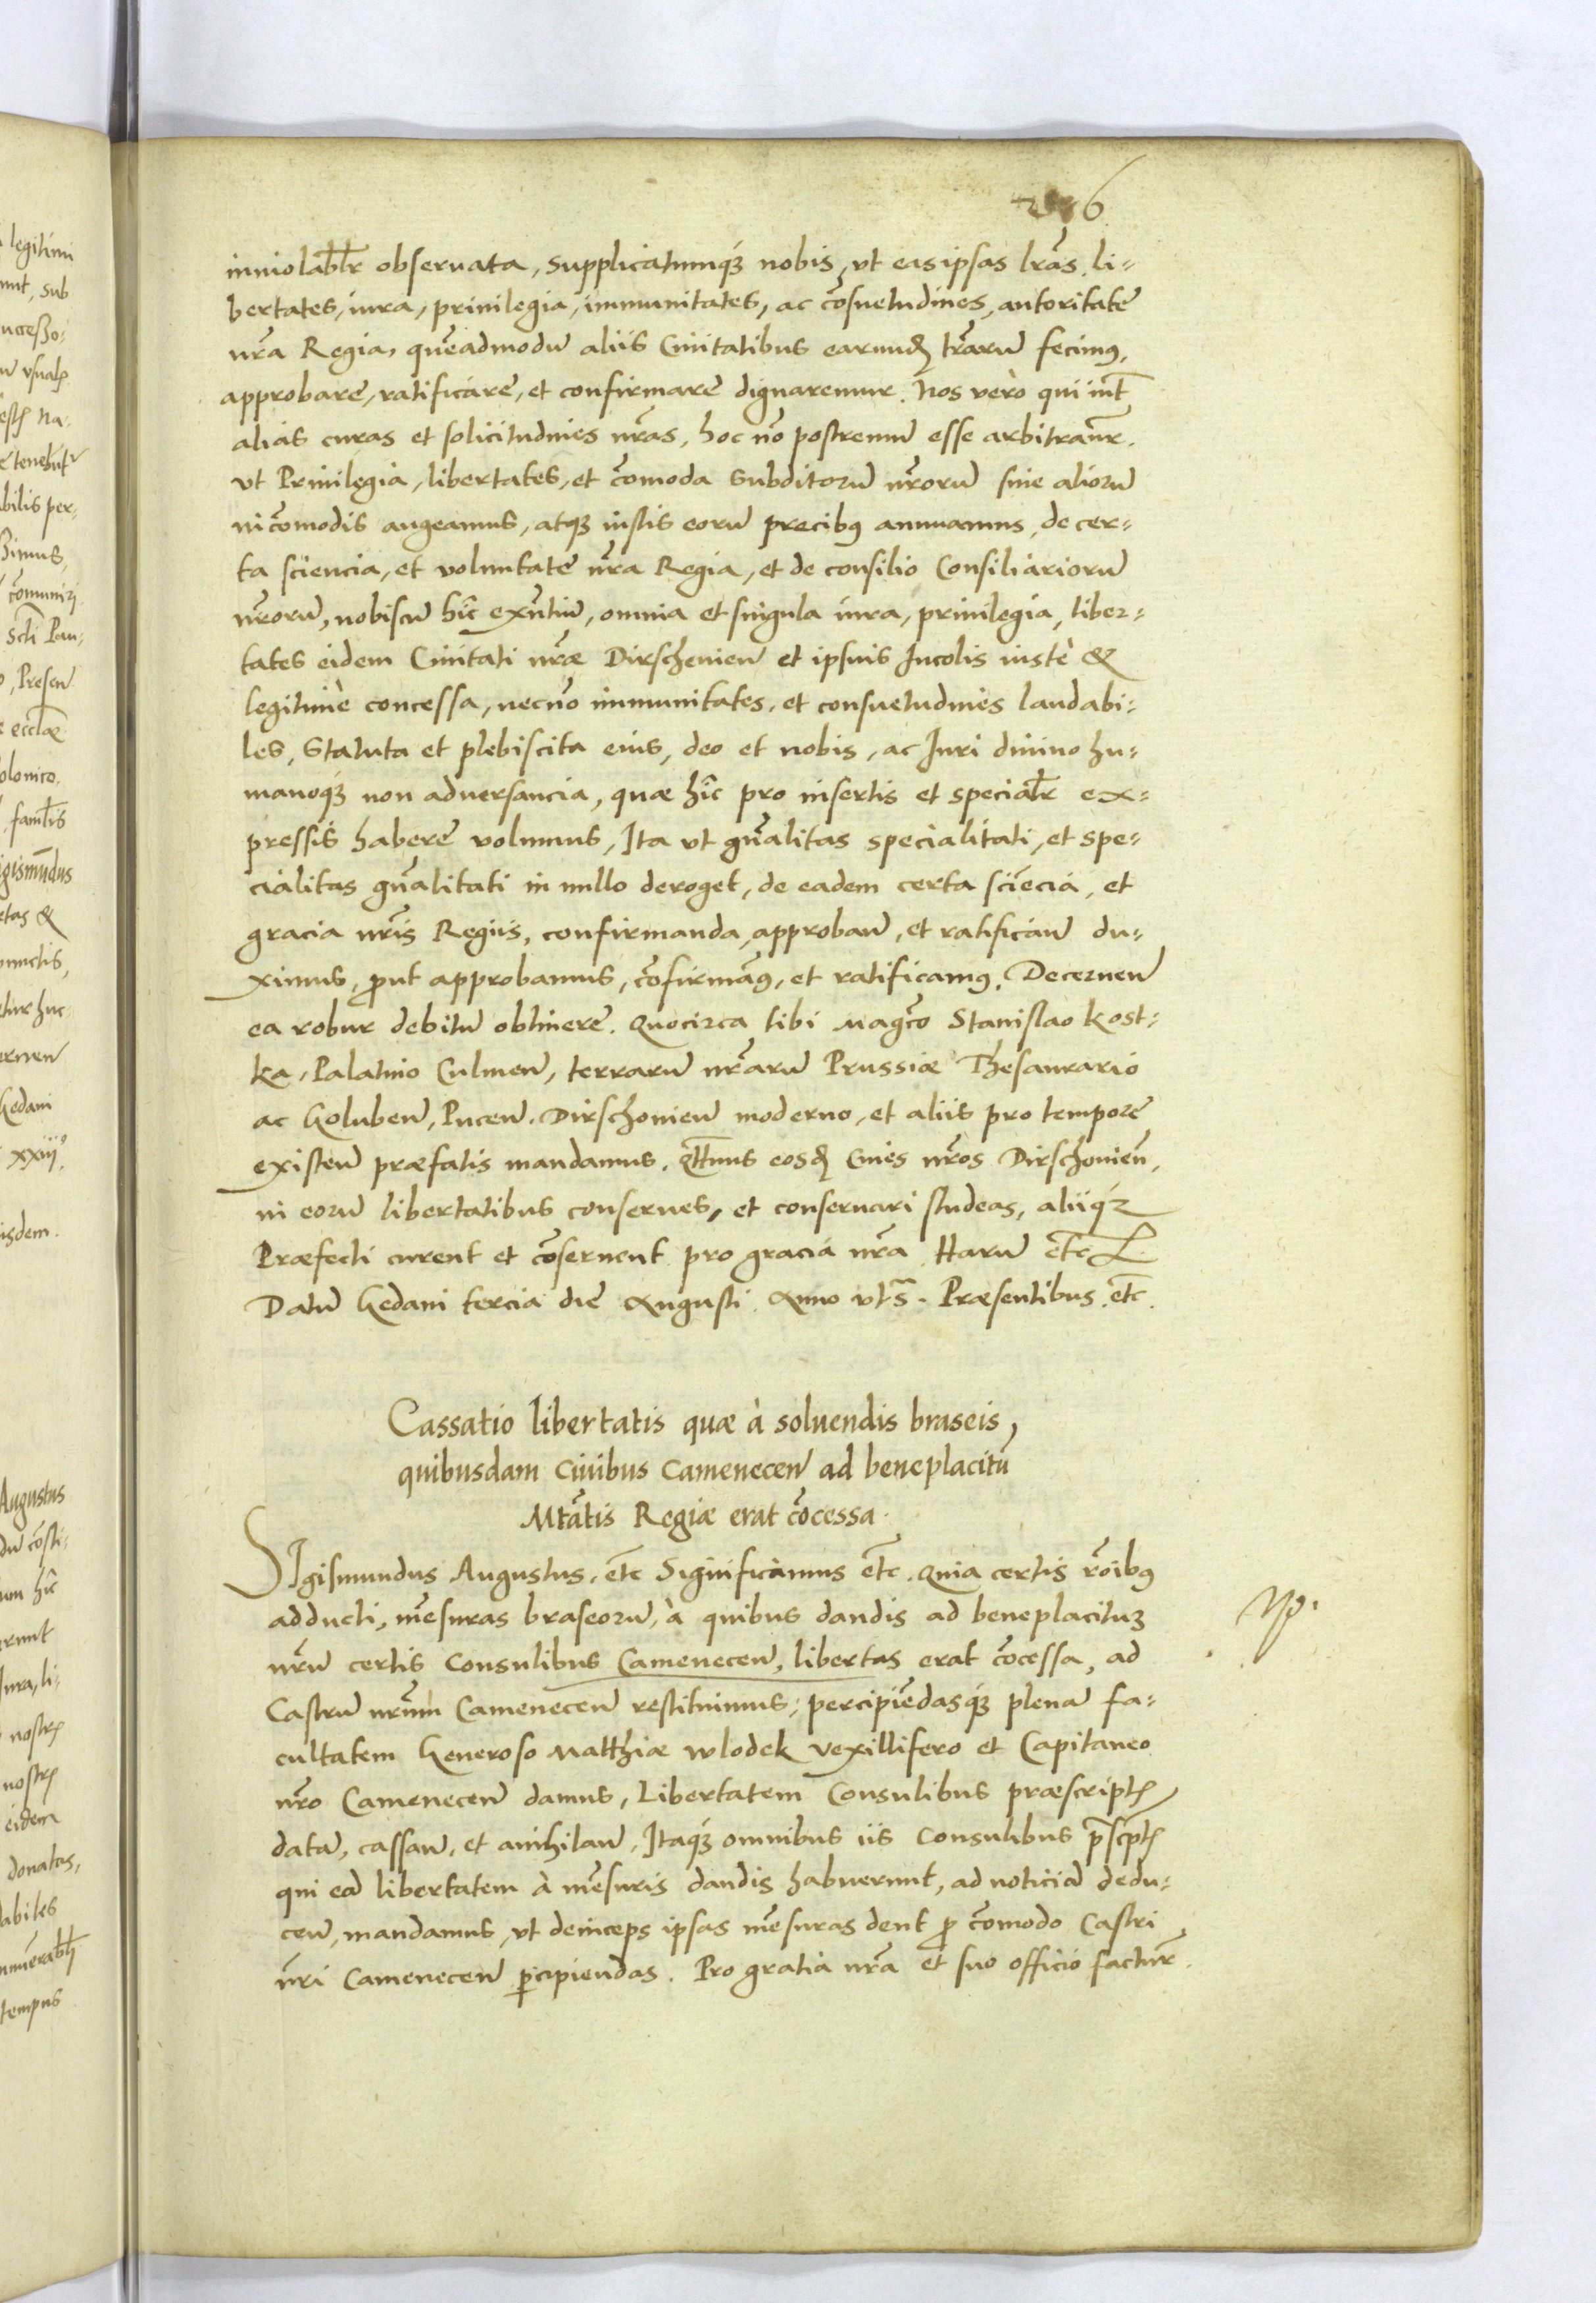 6
inuiolablr observata, supplicatumq́ꝫ nobis, vt eas ipsas lrãs, li-
bertates, iura, priuilegia, immunitates, ac cõsuetudines, autoritate
nrã Regia, quẽadmodũ aliis Ciuitatibus earundꝫ trãrũ fecimꝰ,
approbare, ratificare, et confirmare dignaremur. Nos vero qui int̃
alias curas et solicitudines nrãs, hoc nõ postremũ esse arbitramr̃.
vt Priuilegia, libertates, et cõmoda subditorũ nrõrũ sine aliorũ
incõmodis augeamus, atqꝫ iustis eorũ precibꝰ annuamus, de cer-
ta sciencia, et voluntate nrã Regia, et de consilio Consiliariorũ
nrõrũ, nobiscũ hic̃ exñtiũ, omnia et singula iura, priuilegia, liber-
tates eidem Ciuitati nrãe Dirschenieñ et ipsius Incolis iustè &
legitimè concessa, necnõ immunitates, et consuetudines laudabi-
les, Statuta et plebiscita eius, deo et nobis, ac Iuri diuino hu-
manoq́ꝫ non aduersancia, quæ hic̃ pro insertis et specialr̃ ex-
pressis habere volumus, Ita vt gñalitas specialitati, et spe-
cialitas gñalitati in nullo deroget, de eadem certa sciẽcia, et
gracia nrĩs Regiis, confirmanda, approbañ, et ratificañ du-
ximus, ꝓut approbamus, cõfirmãꝰ, et ratificamꝰ. Decerneñ
ea robur debitũ obtinere. Quocirca tibi Magco̅ Stanislao Kost-
ka, Palatino Culmeñ, terrarũ nrãrũ Prussiæ Thesaurario
ac Golubeñ, Puceñ. Dirschonieñ moderno, et aliis pro tempore
existeñ præfatis mandamus. qtt̃nus eosdꝫ Ciues nrõs Dirschonieñ,
in eorũ libertatibus conserues, et conseruari studeas, aliiq́ꝫ
Præfecti curent et cõseruent pro gracia nrã Harũ etc̃ L.
Datũ Gedani tercia die Augusti Anno vts̃. Præsentibus etc̃.
Cassatio libertatis quæ à soluendis braseis,
quibusdam Ciuibus Cameneceñ ad beneplacitũ
Mtãtis Regiæ erat cõcessa.
SIgismundus Augustus, etc̃ Significamus etc̃. Quia certis rõibꝰ
adducti, mẽsuras braseorũ, à quibus dandis ad beneplacituꝫ
nrũ certis Consulibus Cameneceñ, libertas erat cõcessa, ad
Np.
Castrũ nrũm Cameneceñ restituimus, percipiẽdasq́ꝫ plenã fa-
cultatem Generoso Matthiæ Wlodek Vexillifero et Capitaneo
nrõ Cameneceñ damus, Libertatem Consulibus præscriptꝭ
datã, cassañ, et anihilañ, Itaqꝫ omnibus iis Consulibus pr̃scptꝭ
qui eã libertatem à mẽsuris dandis habuerunt, ad noticiã dedu-
ceñ, mandamus, vt deinceps ipsas mẽsuras dent ꝓ cõmodo Castri
nrĩ Cameneceñ ꝑcipiendas. Pro gratia nrã et suo officio factur̃.